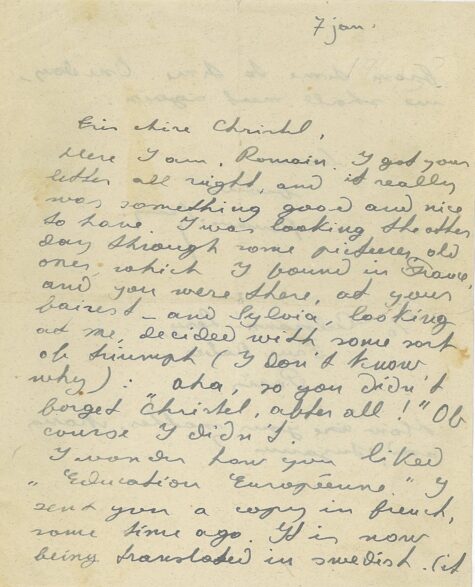 7 jan.
Christel,
Here I am, Romain. I got your
letter all right, and it really
was something good and nice
to have. I was looking the other
day through some pictures, old
ones, which I found in France,
and you were there, at your
fairest – and Sylvia, looking
at me, decided with some sort
of triumph (I don't know
why): "aha, so you didn't
forget Christel, after all!" Of
course I didn't.
I wonder how you liked
"Education Européenne." I
sent you a copy in french,
some time ago. It is now
being translated in swedish. (it